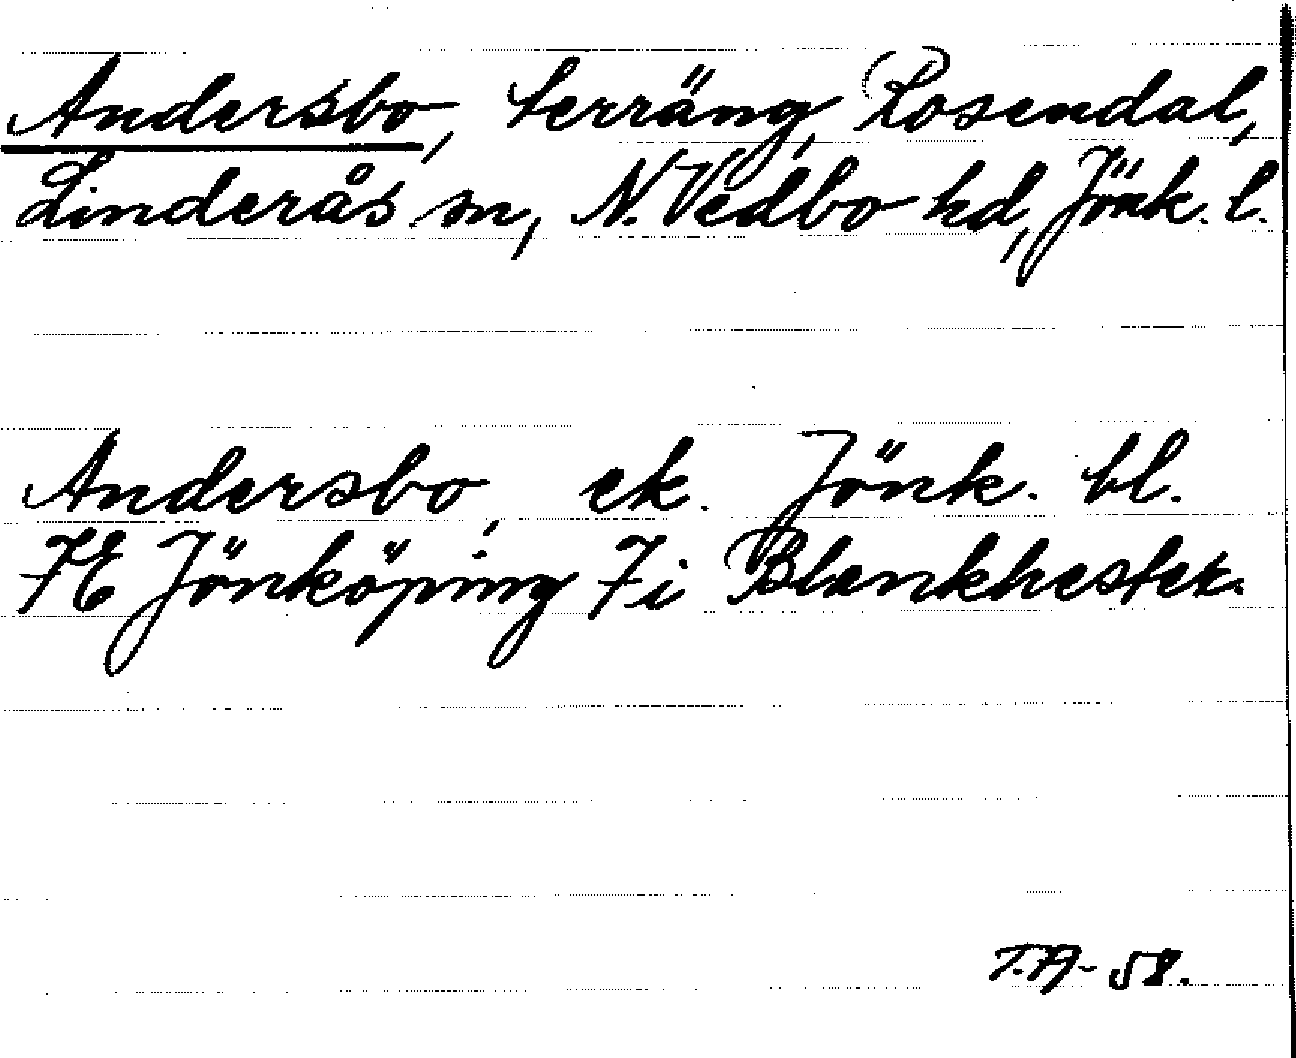 Andersbo, terräng, Rosendal,
Linderås sn, N. Vedbo hd, Jönk. l.
Andersbo, ek. Jönk. bl.
7E Jönköping 7i Blankhester.
58.